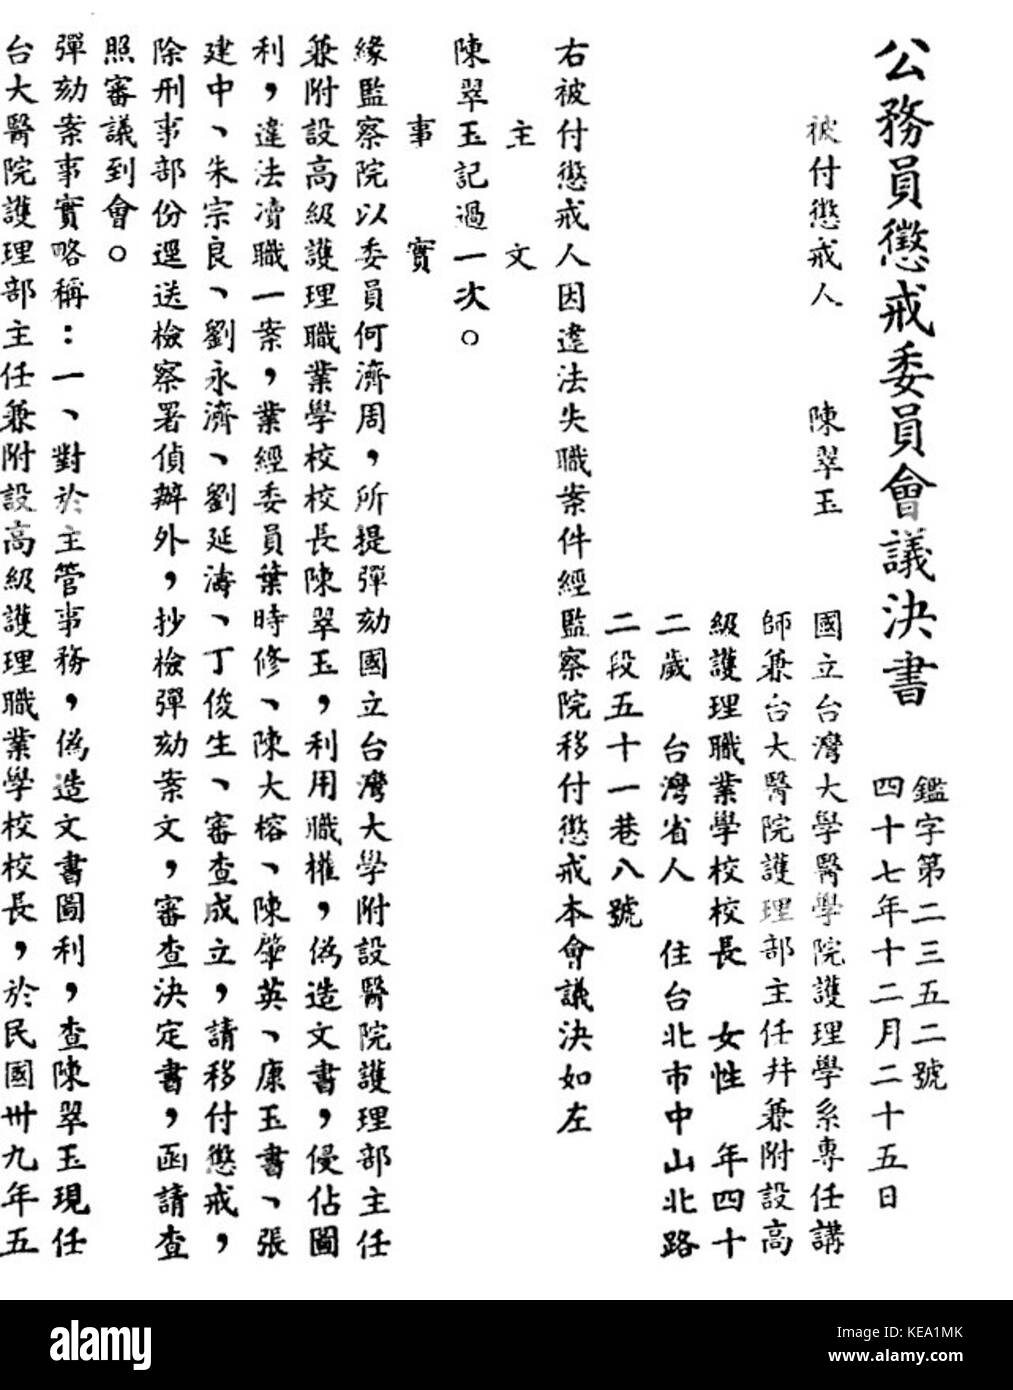 公務員懲戒委員會議決書
鑑字第二三五二號
四十七年十二月二十五日
被付懲戒人 陳翠玉
國立台灣大學醫學院護理學系專任講
師兼台大醫院護理部主任并兼附設高
級護理職業學校校長 女性 年四十
二歲 台灣省人 住台北市中山北路
二段五十一巷八號
右被付懲戒人因違法失職案件經監察院移付懲戒本會議決如左
主文
陳翠玉記過一次。
事實
緣監察院以委員何濟周，所提彈劾國立台灣大學附設醫院護理部主任
兼附設高級護理職業學校校長陳翠玉，利用職權，偽造文書，侵佔圖
利，違法凟職一案，業經委員葉時修、陳大榕、陳肇英、康玉書、張
建中、朱宗良、劉永濟、劉延濤、丁俊生、審查成立，請移付懲戒，
除刑事部份逕送檢察署偵辦外，抄檢彈劾案文，審查決定書，函請查
照審議到會。
彈劾案事實略稱：一、對於主管事務，偽造文書圖利，查陳翠玉現任
台大醫院護理部主任兼附設高級護理職業學校校長，於民國卅九年五
alamy stock photo
alamy
Image ID: KEA1MK
www.alamy.com